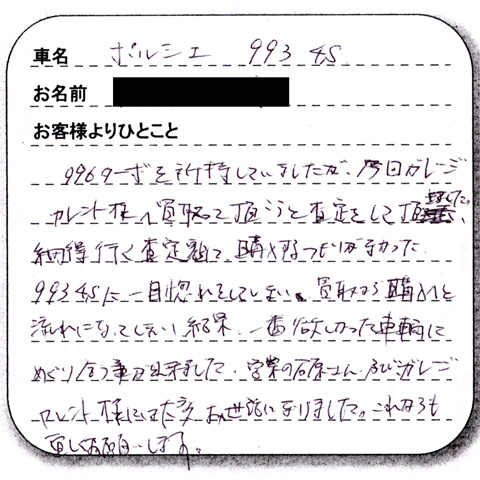 車名 ポルシェ 993 4S
お名前
お客様よりひとこと
996ターボを所持していましたが、今回ガレージ
カレント様へ買取って頂こうと査定をして頂きました。
納得行く査定額で、購入するつもりがなかった
993 4Sに一目惚れをしてしまい、買取から購入と
流れになってしまい結果、一番欲しかった車輌に
めぐり会う事が出来ました。営業の石原さん、及びガレージ
カレント様には大変お世話になりました。これからも
宜しくお願いします。